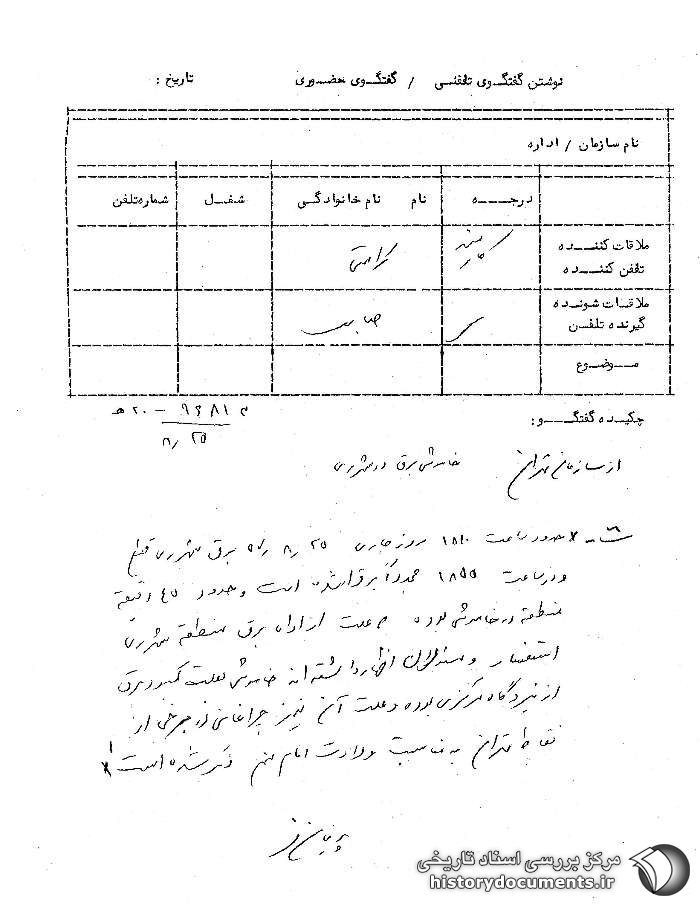 نوشتن گفتگوی تلفنی / گفتگوی حضوری تاریخ :
نام سازمان / اداره
درجه نام نام خانوادگی شغل شماره تلفن
ملاقات کننده
تلفن کننده
کارمند کرامتی
ملاقات شونده
گیرنده تلفن
موضوع
چکیده گفتگو :
۲۰ هـ
۸/۲۵
از سازمان تهران خاموشی برق در شهرری
حدود ساعت ۱۸۱۰ روز جاری ۲۵ / ۸ / ۵۷ برق شهرری قطع
و در ساعت ۱۸۵۵ مجدداً برقرار شده است و حدود ۴۵ دقیقه
منطقه در خاموشی بوده علت از اداره برق منطقه شهرری
استفسار و مسئولان اظهار داشته‌اند خاموشی بعلت کمبود برق
از نیروگاه مرکزی بوده و علت آن نیز چراغانی در برخی از
نقاط تهران به مناسبت ولادت امام ذکر شده است
مرکز بررسی اسناد تاریخی
historydocuments.ir